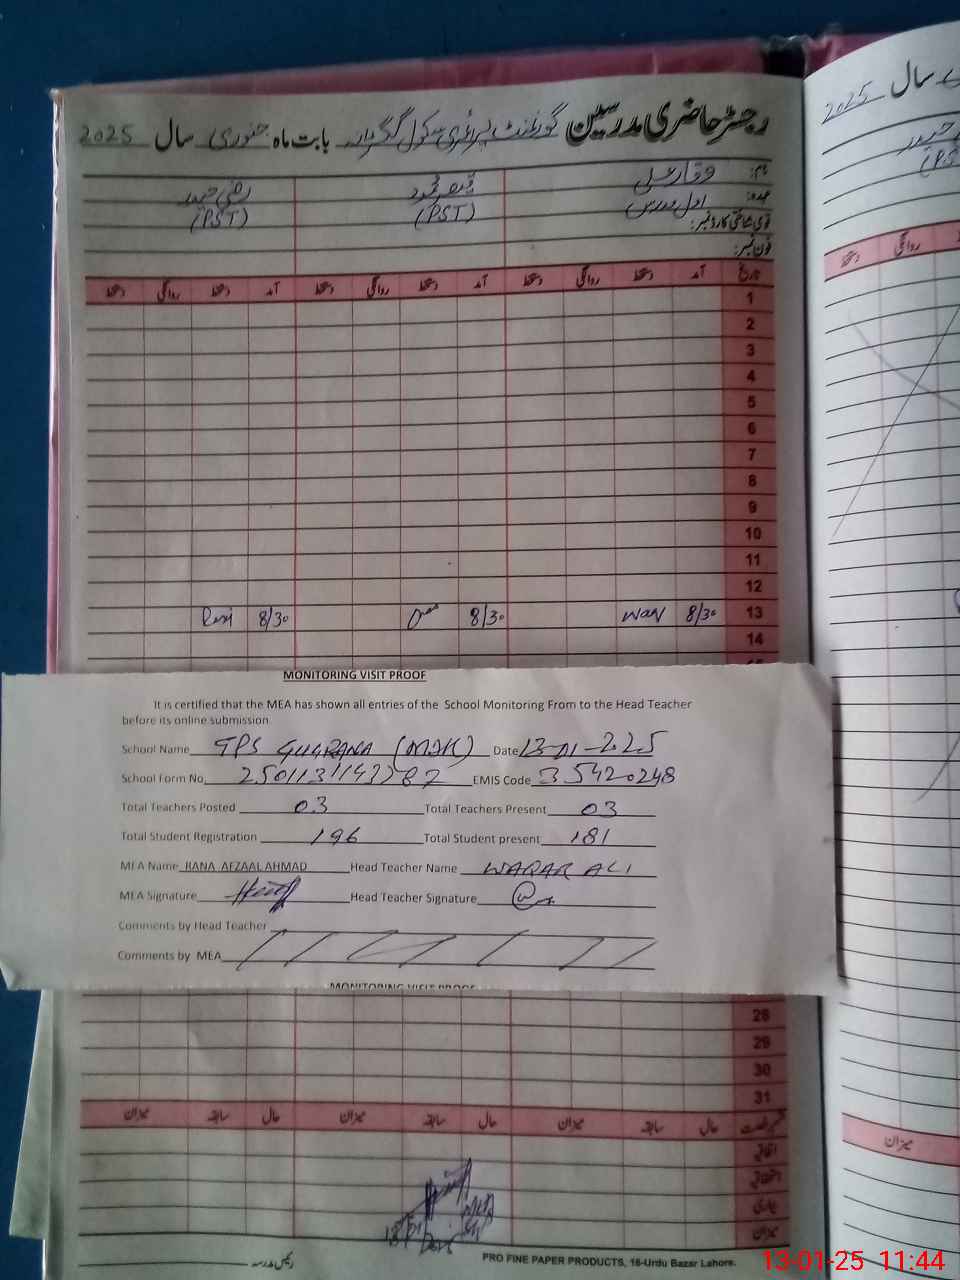 رجسٹر حاضری مدرسین گورنمنٹ پرائمری سکول گگڑانہ بابت ماہ جنوری سال 2025
نام: وقار علی
عہدہ: اول مدرس (PST) (PST)
قومی شناختی کارڈ نمبر:
فون نمبر:
تاریخ آمد دستخط روانگی دستخط آمد دستخط روانگی دستخط آمد دستخط روانگی دستخط
1
2
3
4
5
6
7
8
9
10
11
12
13 8/30 8/30 8/30
14
MONITORING VISIT PROOF
It is certified that the MEA has shown all entries of the School Monitoring From to the Head Teacher
before its online submission
School Name GPS GUGRANA (MDK) Date 13-01-2025
School Form No. EMIS Code 35420248
Total Teachers Posted 03 Total Teachers Present 03
Total Student Registration 196 Total Student present 181
MEA Name RANA AFZAAL AHMAD Head Teacher Name WAQAR ALI
MEA Signature Head Teacher Signature
Comments by Head Teacher
Comments by MEA
MONITORING VISIT PROOF
28
29
30
31
حال سابقہ میزان حال سابقہ میزان حال سابقہ میزان
اتفاقیہ
استحقاقیہ
بیماری
میزان
رئیس مدرسہ
PRO FINE PAPER PRODUCTS, 16-Urdu Bazar Lahore.
سال 2025
روانگی دستخط
میزان
13-01-25 11:44